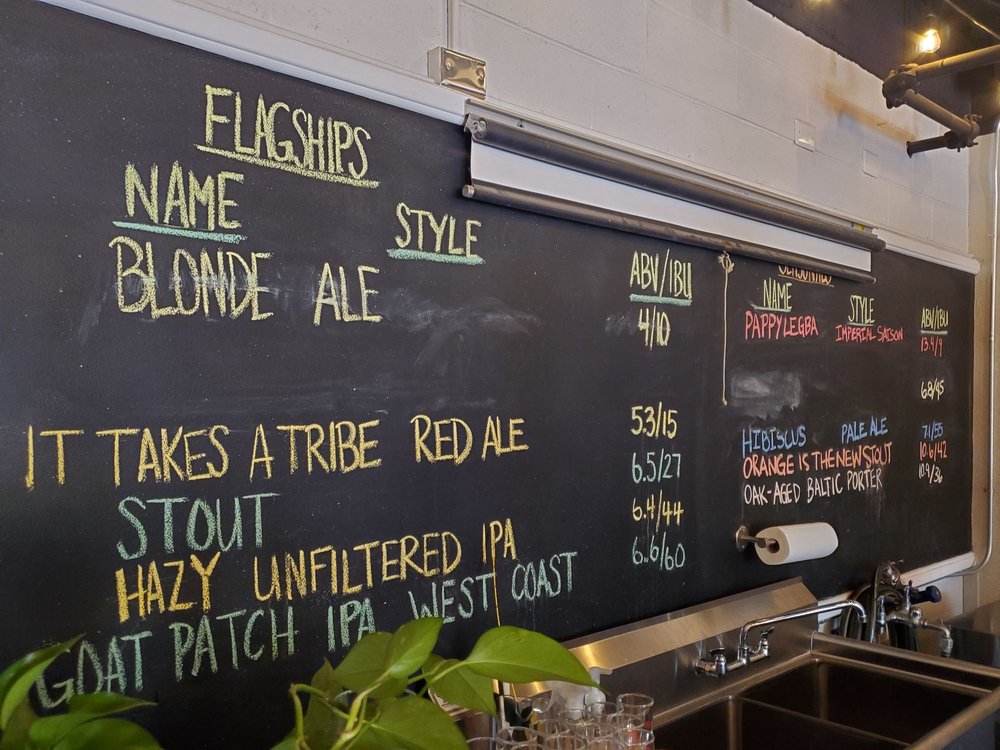 FLAGSHIPS
NAME STYLE ABV/IBU
BLONDE ALE 4/10
IT TAKES A TRIBE RED ALE 5.3/15
STOUT 6.5/27
HAZY UNFILTERED IPA 6.4/44
GOAT PATCH IPA WEST COAST 6.6/60
NAME STYLE ABV/IBU
PAPPY LEGBA IMPERIAL SAISON 13.4/9
68/45
HIBISCUS PALE ALE 7.1/55
ORANGE IS THE NEW STOUT 10.6/42
OAK-AGED BALTIC PORTER 10.9/36